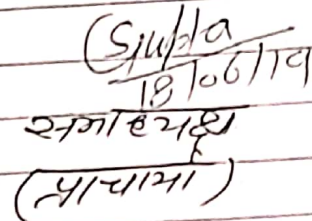 (Gupta
18/06/19
सभाध्यक्ष
(प्राचार्या)